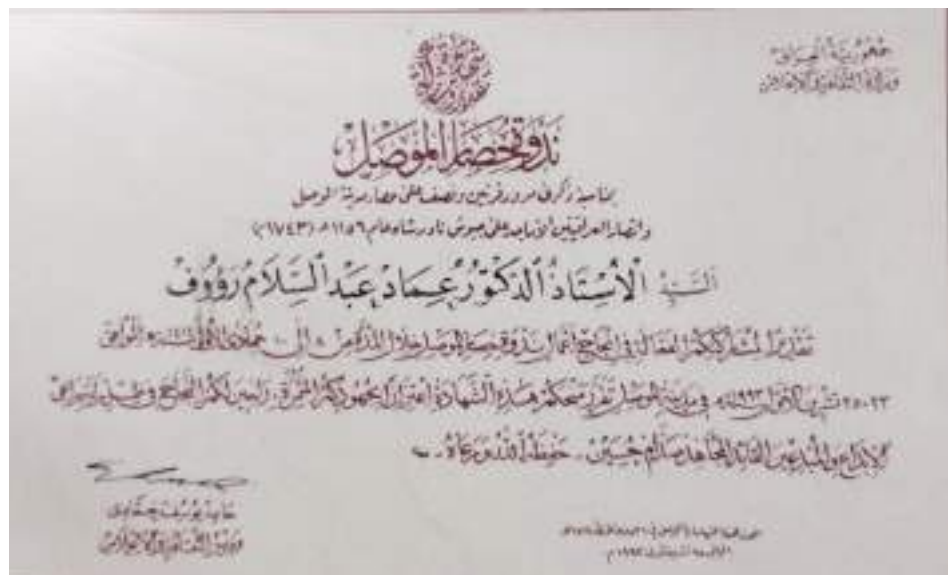 جمهورية العراق
وزارة الثقافة والإعلام
ندوة حصار الموصل
بمناسبة ذكرى مرور قرنين ونصف على حصار مدينة الموصل
وانتصار العراقيين الأماجد على جيوش نادر شاه عام ١١٥٦ه (١٧٤٣م)
السيد الأستاذ الدكتور عماد عبد السلام رؤوف
تقديراً لمشاركتكم الفعالة في إنجاح أعمال ندوة حصار الموصل خلال المدة من ٨ إلى ١٠ جمادى الأولى الموافق
٢٣-٢٥ تشرين الأول ١٩٩٣ في مدينة الموصل نقرر منحكم هذه الشهادة اعتزازاً بجهودكم المثمرة راجين لكم النجاح في
الإبداع والمبدعين القائد المجاهد صدام حسين . حفظه الله ورعاه .
حامد يوسف حمادي
وزير الثقافة والإعلام